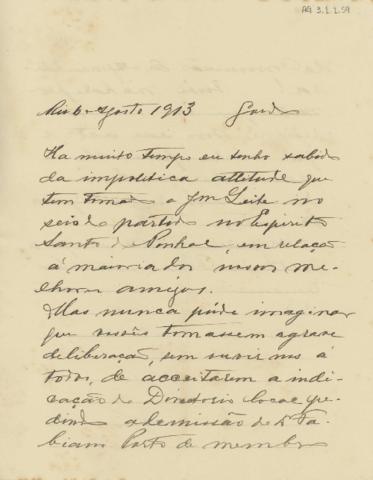 AG 3.1.1.59
Rio 6 Agosto 1913
Ha muito tempo eu tenho sabido
da impolitica attitude que
tem tomado o Jm Leite no
seio do partido no Espirito
Santo do Pinhal, em relação
á maioria dos nossos me-
lhores amigos.
Mas nunca pude imaginar
que vocês tomassem a grave
deliberação, sem ouvir-nos a
todos, de acceitarem a indi-
cação do Directorio local pe-
dindo a demissão do Dr Fa-
biam Porto de membro